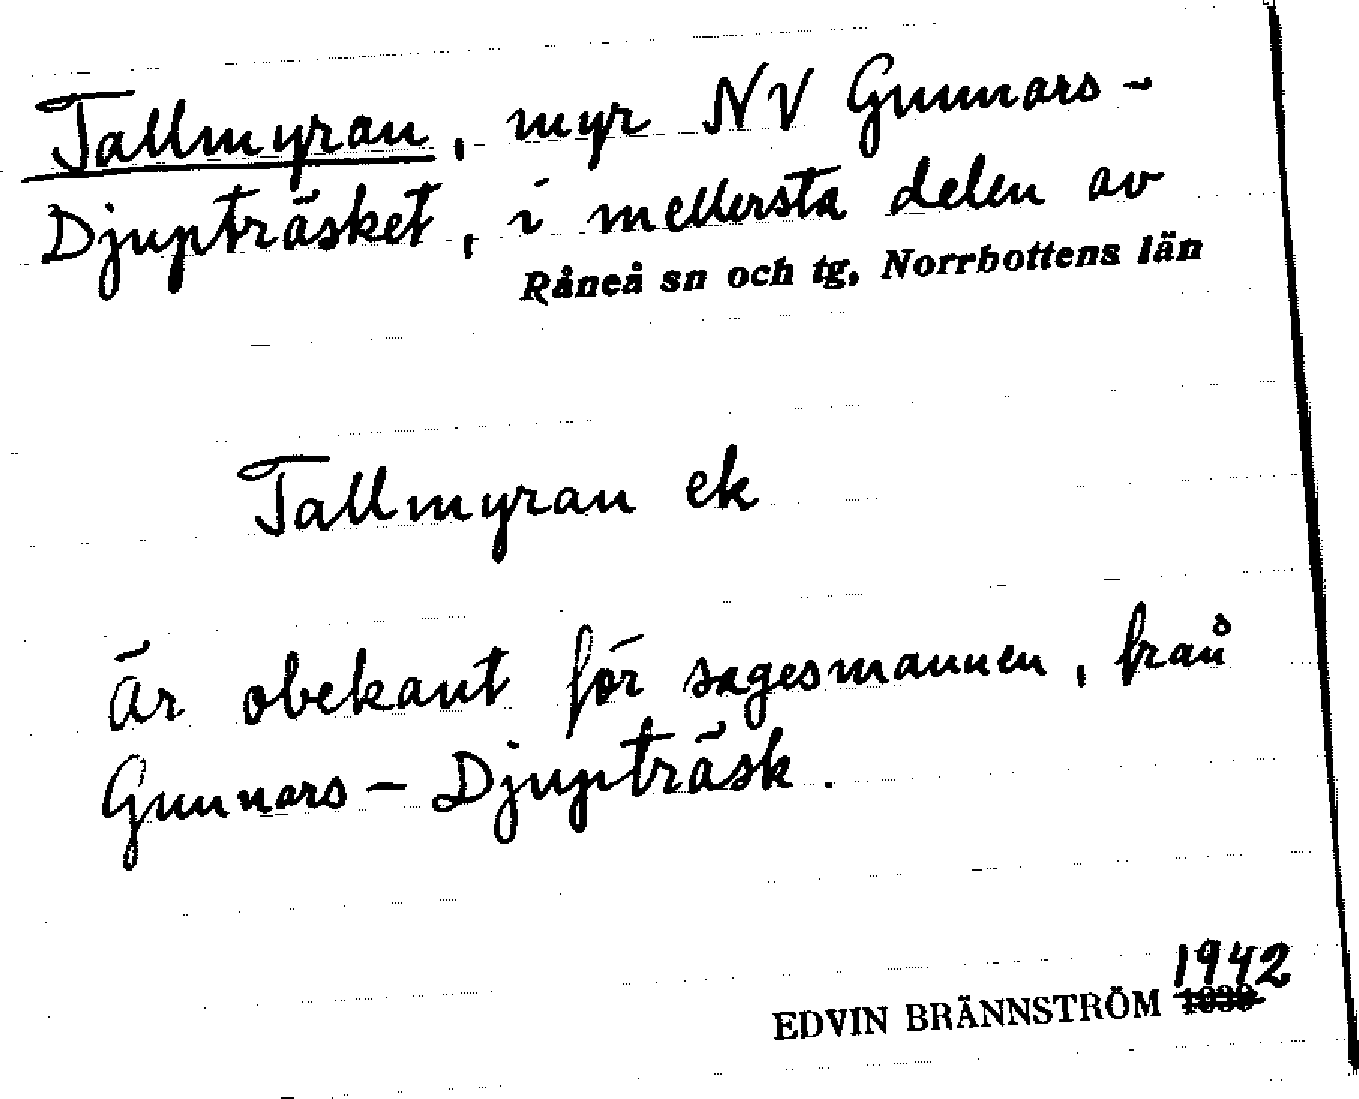 Tallmyran, myr NV Gunnars-
Djupträsket, i mellersta delen av
Råneå sn och tg, Norrbottens län
Tallmyran ek
Är obekant för sagesmannen, från
Gunnars-Djupträsk.
1942
EDVIN BRÄNNSTRÖM 1939